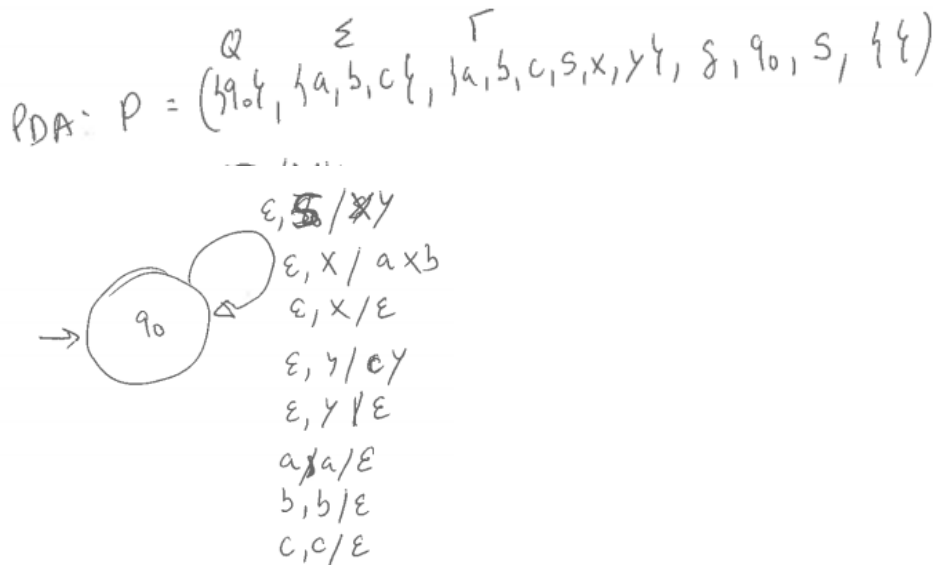 Q Σ Γ
PDA: P = ({q₀}, {a, b, c}, {a, b, c, S, x, y}, δ, q₀, S, { })
ε, S / xy
ε, x / a x b
q₀
ε, x / ε
ε, y / cy
ε, y / ε
a, a / ε
b, b / ε
c, c / ε